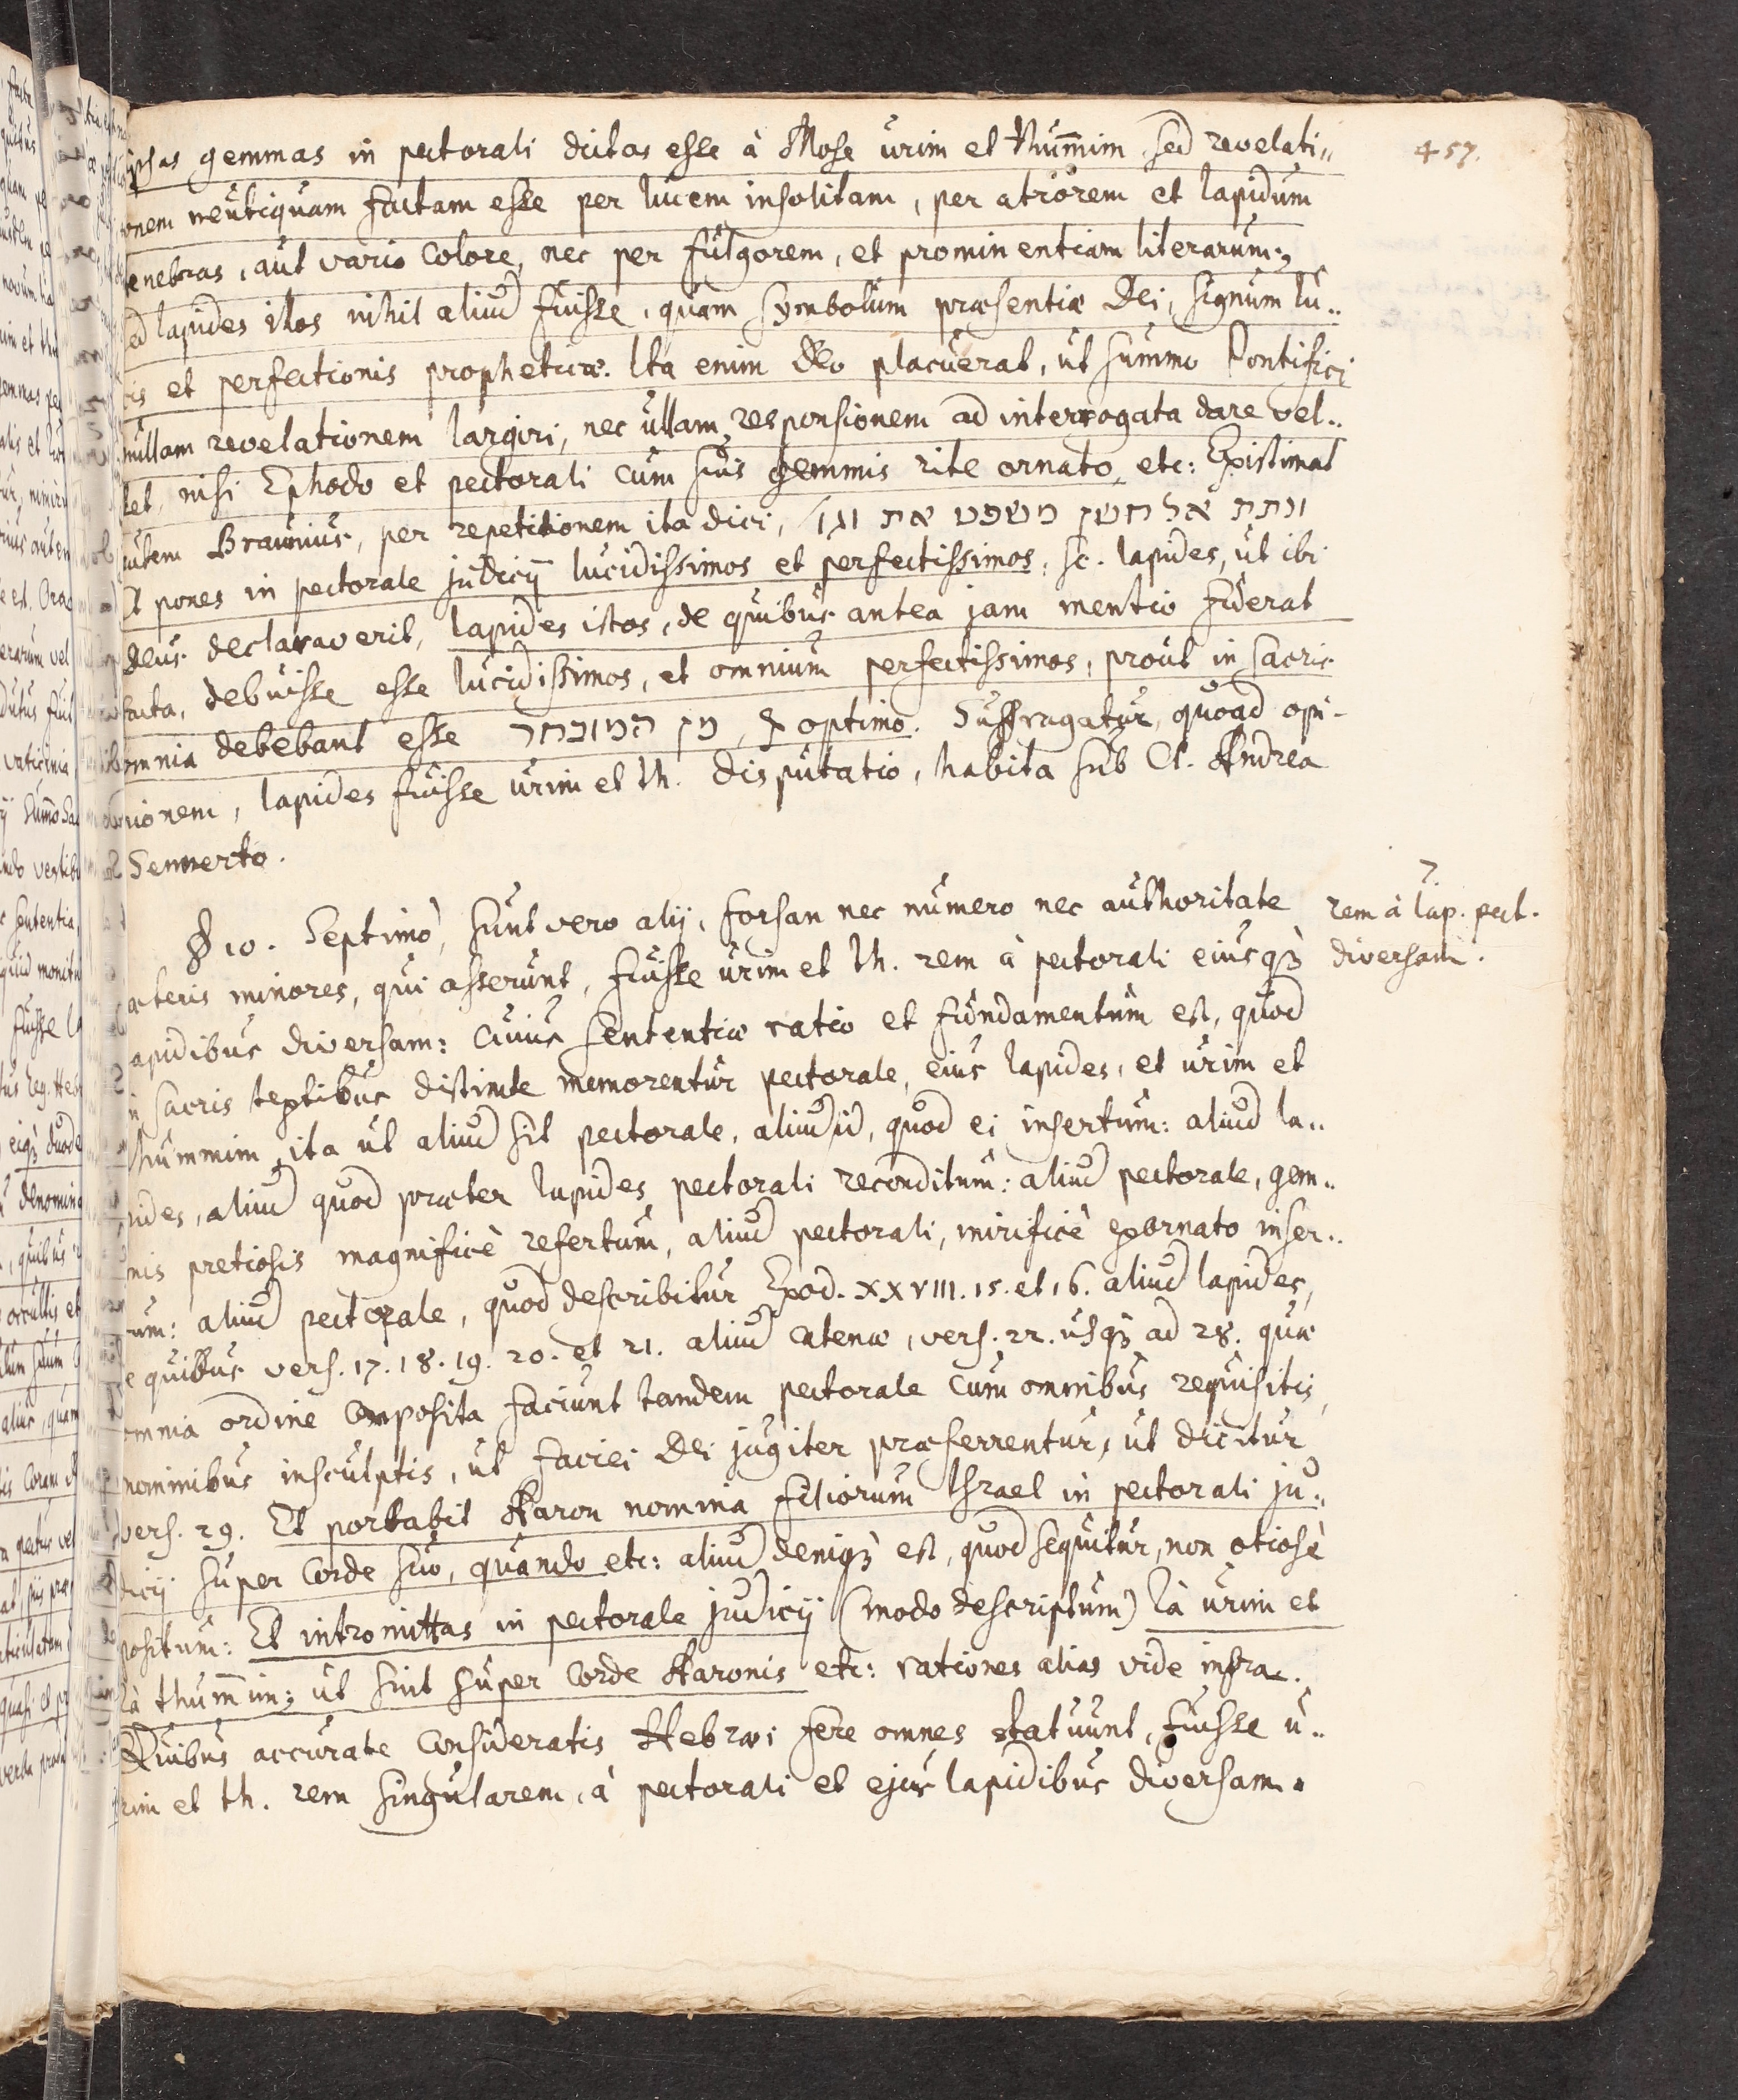 457.
ipsas gemmas in pectorali dictas esse à Mose urim et thum̄im, sed revelati„
onem neutiquam factam esse per lucem insolitam, per atrorem et lapidum
tenebras, aut vario colore, nec per fulgorem, et prominentiam literarum;
sed lapides illos nihil aliud fuisse, quam symbolum præsentiæ Dei, signum lu„
cis et perfectionis propheticæ. Ita enim Deo placuerat, ut summo Pontifici
nullam revelationem largiri, nec ullam responsionem ad interrogata dare vel„
let, nisi Ephodo et pectorali cum suis gemmis rite ornato, etc: Existimat
autem Braunius, per repetitionem ita dici, ונתת אל חשן משפט את וגו׳
Et pones in pectorale judicij lucidissimos et perfectissimos, sc. lapides, ut ibi
Deus declaraverit, lapides istos, de quibus antea jam mentio fuerat
facta, debuisse esse lucidissimos, et omnium perfectissimos, prout in sacris
omnia debebant esse מן המובחר, ex optimo. Suffragatur, quoad opi-
nionem, lapides fuisse urim et th. disputatio, habita sub Cl. Andrea
Sennerto.
§ 10. Septimò, sunt vero alij, forsan nec numero nec authoritate
cæteris minores, qui asserunt, fuisse urim et th. rem à pectorali eiusqȝ
lapidibus diversam: Cuius sententiæ ratio et fundamentum est, quod
in sacris textibus distincte memorentur pectorale, eius lapides, et urim et
thummim, ita ut aliud sit pectorale, aliud id, quod ei insertum: aliud la„
pides, aliud quod præter lapides pectorali reconditum: aliud pectorale, gem„
mis pretiosis magnificè refertum, aliud pectorali, mirificè exornato inser„
tum: aliud pectorale, quod describitur Exod. XXVIII. 15. et 16. aliud lapides,
de quibus vers. 17. 18. 19. 20. et 21. aliud catenæ, vers. 22. usqȝ ad 28. quæ
omnia ordine composita faciunt tandem pectorale cum omnibus requisitis,
nominibus insculptis, ut faciei Dei jugiter præferrentur, ut dicitur
vers. 29. Et portabit Aaron nomina filiorum Israel in pectorali ju„
dicij super corde suo, quando etc: aliud deniqȝ est, quod sequitur, non otiosè
positum: Et intromittas in pectorale judicij (modo descriptum) τὰ urim et
τὰ thum̄im; ut sint super corde Aaronis etc: rationes alias vide infra.
Quibus accurate consideratis Hebræi fere omnes statuunt, fuisse u„
rim et th. rem singularem, à pectorali et ejus lapidibus diversam.
7.
rem à lap. pect.
diversam.